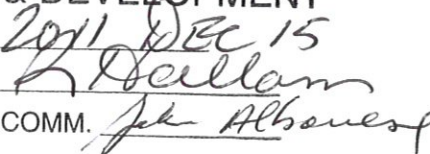 & DEVELOPMENT
2011 DEC 15
R Hallam
COMM. John Albanese